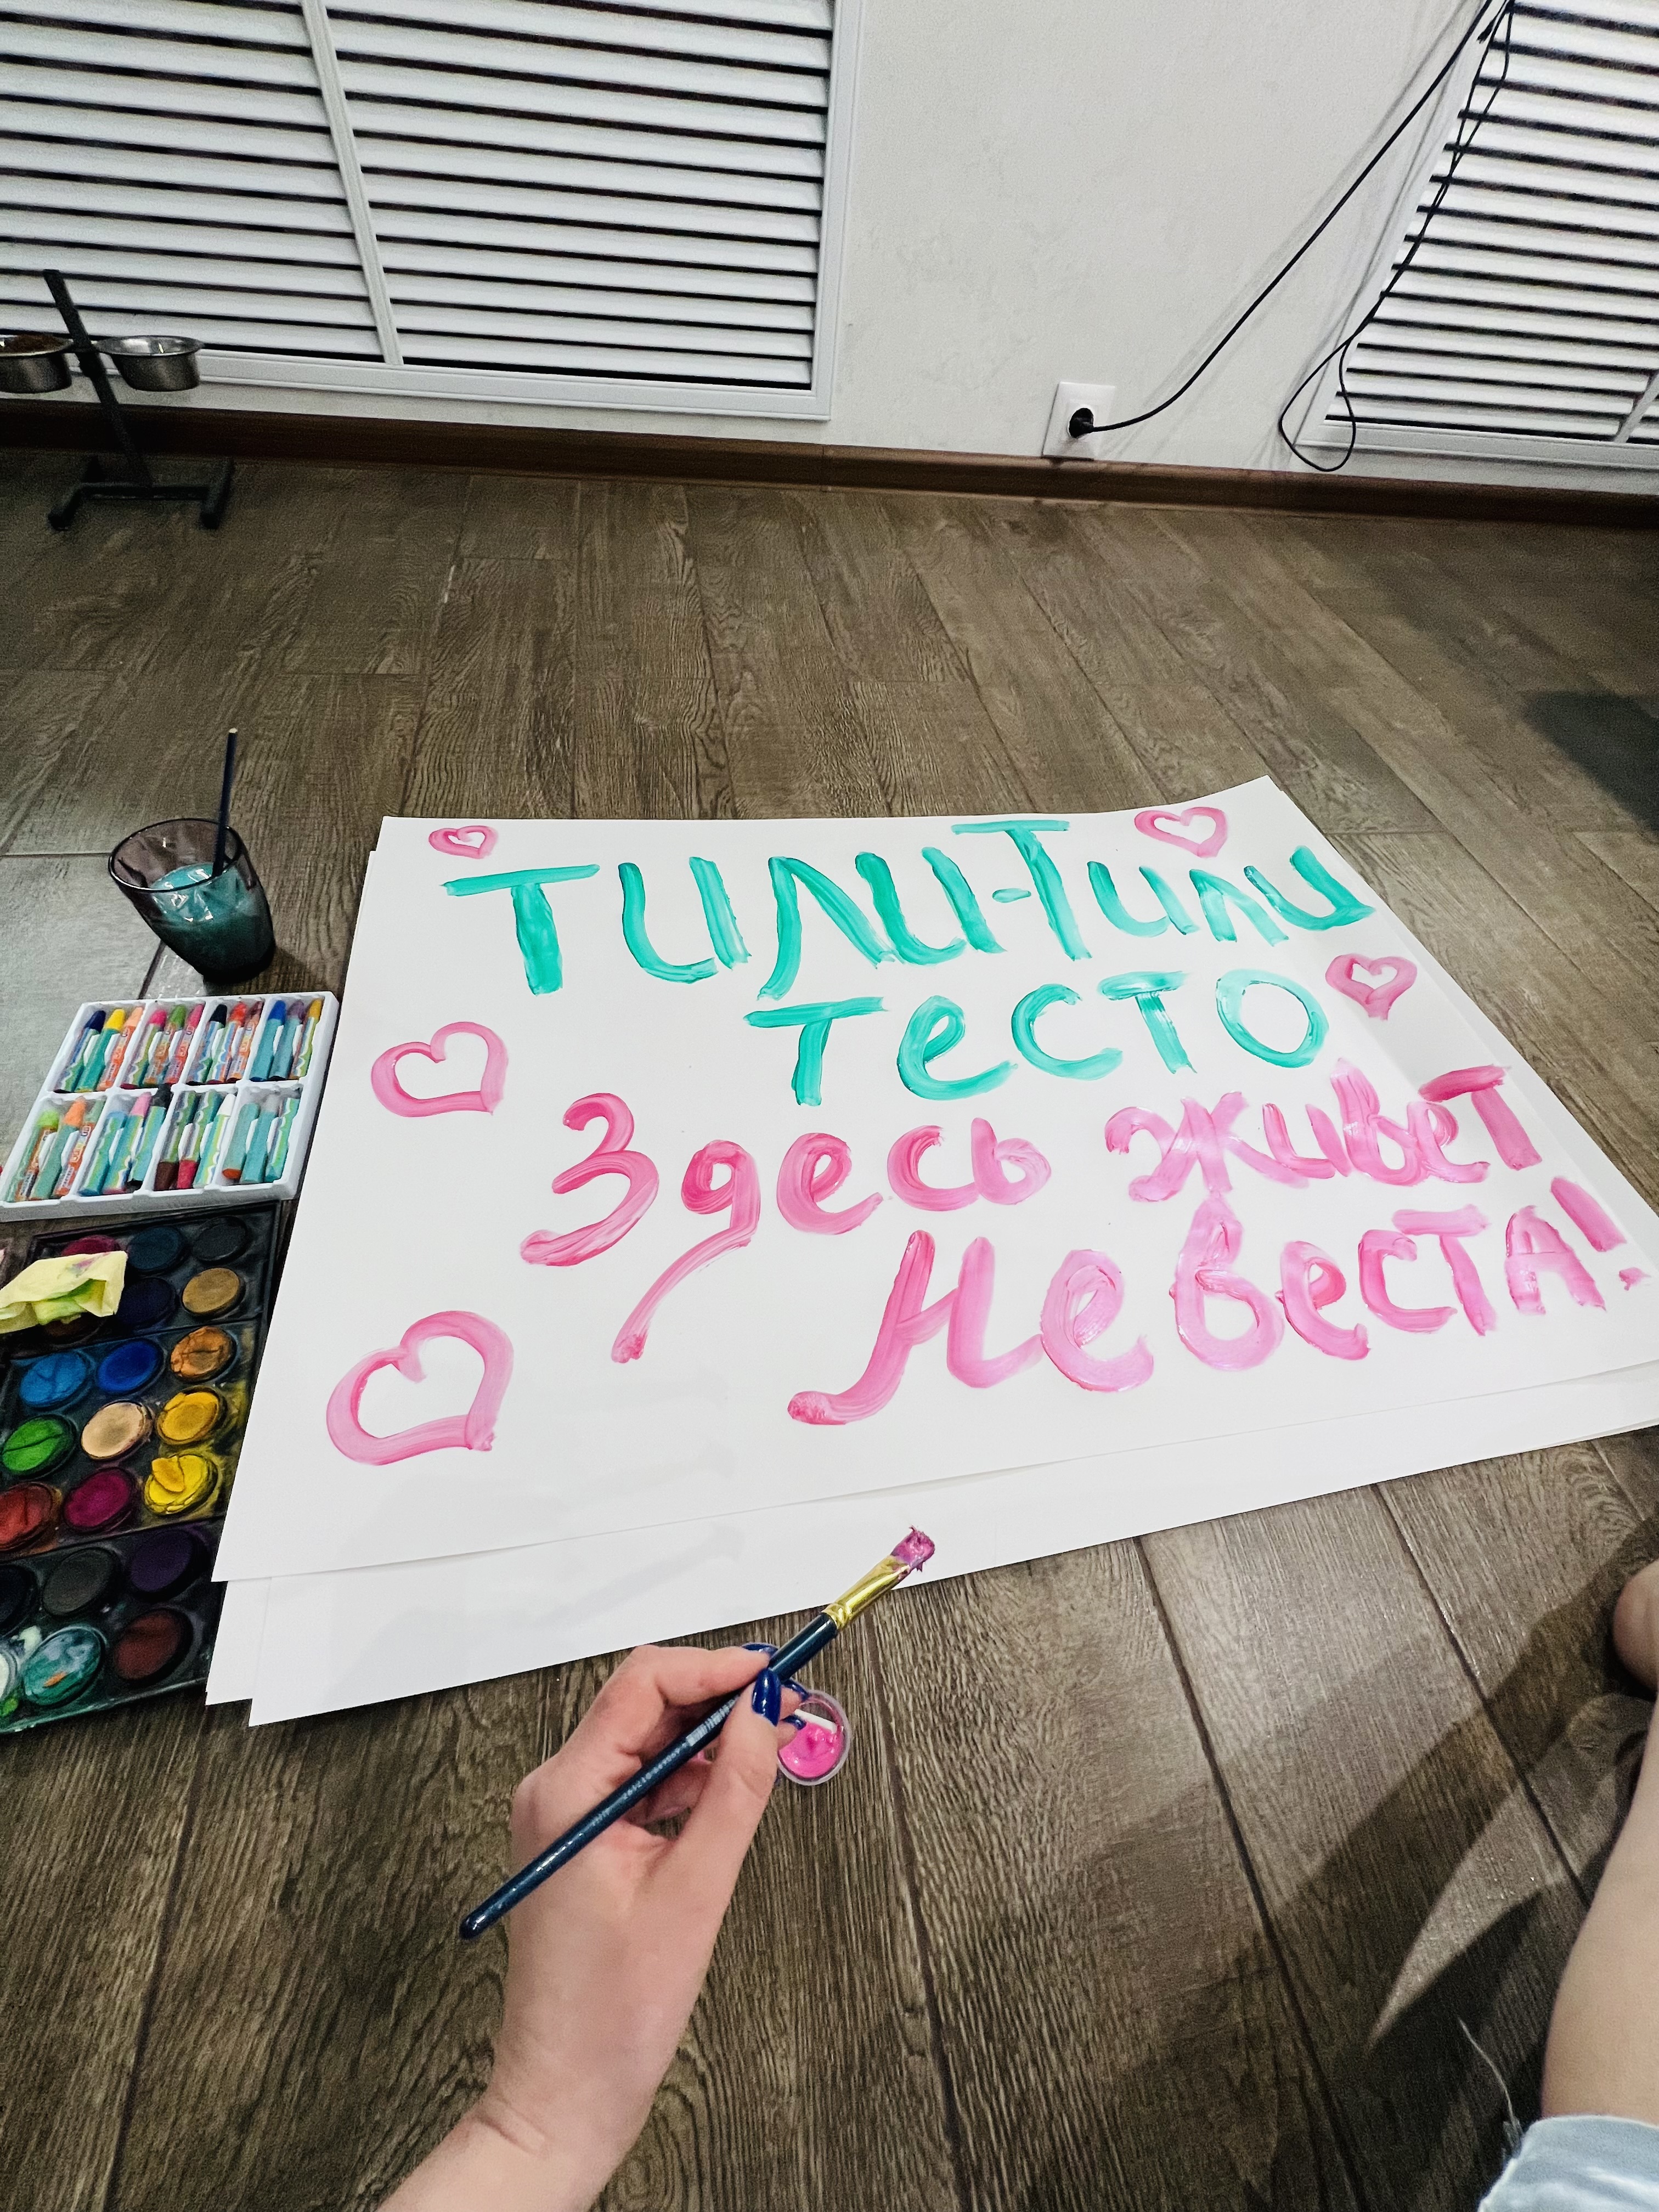 Тили-Тили
тесто
Здесь живет
Невеста!